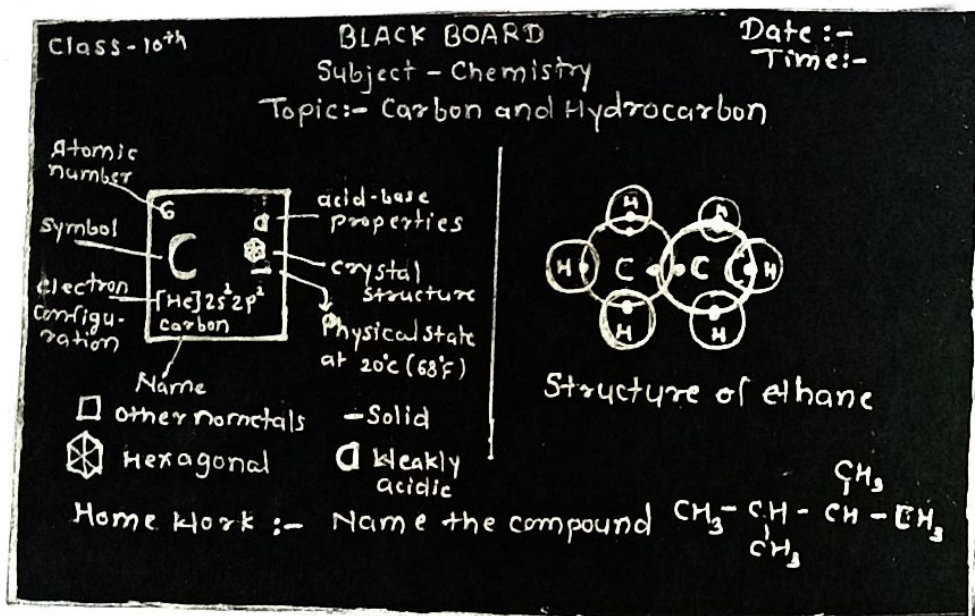 Class-10th
BLACK BOARD
Date :-
Time:-
Subject - Chemistry
Topic:- Carbon and Hydrocarbon
Atomic
number
6
symbol
C
electron
configu-
ration
[He]2s²2p²
carbon
Name
acid-base
properties
crystal
structure
Physical state
at 20°c (68°F)
other nometals
-Solid
Hexagonal
Weakly
acidic
H H
H C C H
H H
Structure of ethane
CH₃
Home Work :- Name the compound CH₃- CH - CH - CH₃
CH₃